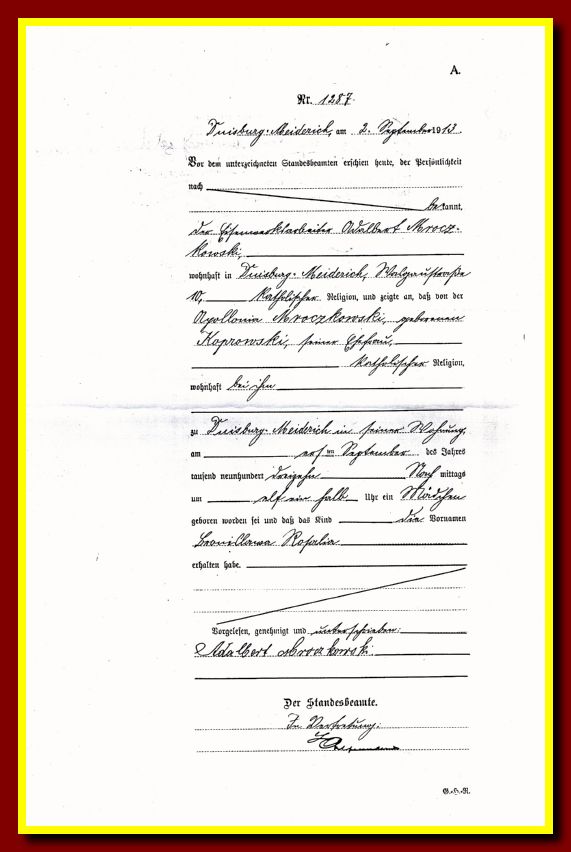 A.
Nr. 1287.
Duisburg-Meiderich, am 2. September 1913.
Vor dem unterzeichneten Standesbeamten erschien heute, der Persönlichkeit
nach
bekannt,
der Eisenwerkarbeiter Adalbert Mrocz-
kowski,
wohnhaft in Duisburg-Meiderich, Walzaustraße
10, katholischer Religion, und zeigte an, daß von der
Apollonia Mroczkowski, geborenen
Koprowski, seiner Ehefrau,
katholischer Religion,
wohnhaft bei ihm
zu Duisburg-Meiderich in seiner Wohnung,
am ersten September des Jahres
tausend neunhundert dreizehn Nachmittags
um elf ein halb Uhr ein Mädchen
geboren worden sei und daß das Kind die Vornamen
Rosalia
erhalten habe.
Vorgelesen, genehmigt und unterschrieben:
Adalbert Mroczkowski.
Der Standesbeamte.
In Vertretung:
G.-H.-R.